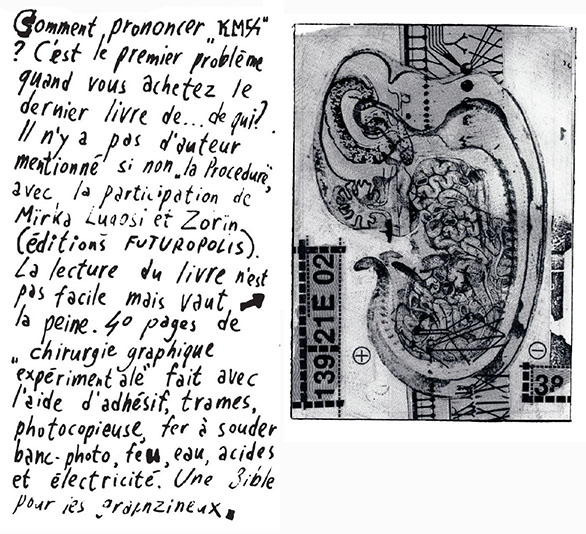 Comment prononcer "KMS4"
? C'est le premier problème
quand vous achetez le
dernier livre de... de qui?
Il n'y a pas d'auteur
mentionné si non "la Procedure",
avec la participation de
Mïrka Lugosi et Zorïn
(éditions FUTUROPOLIS).
La lecture du livre n'est
pas facile mais vaut ➡
la peine. 40 pages de
"chirurgie graphique
expérimentale" fait avec
l'aide d'adhésif, trames,
photocopieuse, fer à souder
banc-photo, feu, eau, acides
et électricité. Une Bible
pour les graphzineux.
139-21E 02
+
-
39